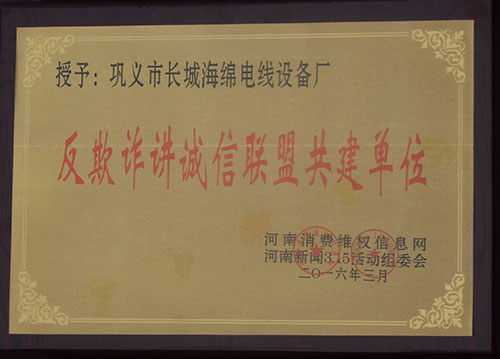 授予：巩义市长城海绵电线设备厂
反欺诈讲诚信联盟共建单位
河南消费维权信息网
河南新闻3.15活动组委会
二〇一六年三月